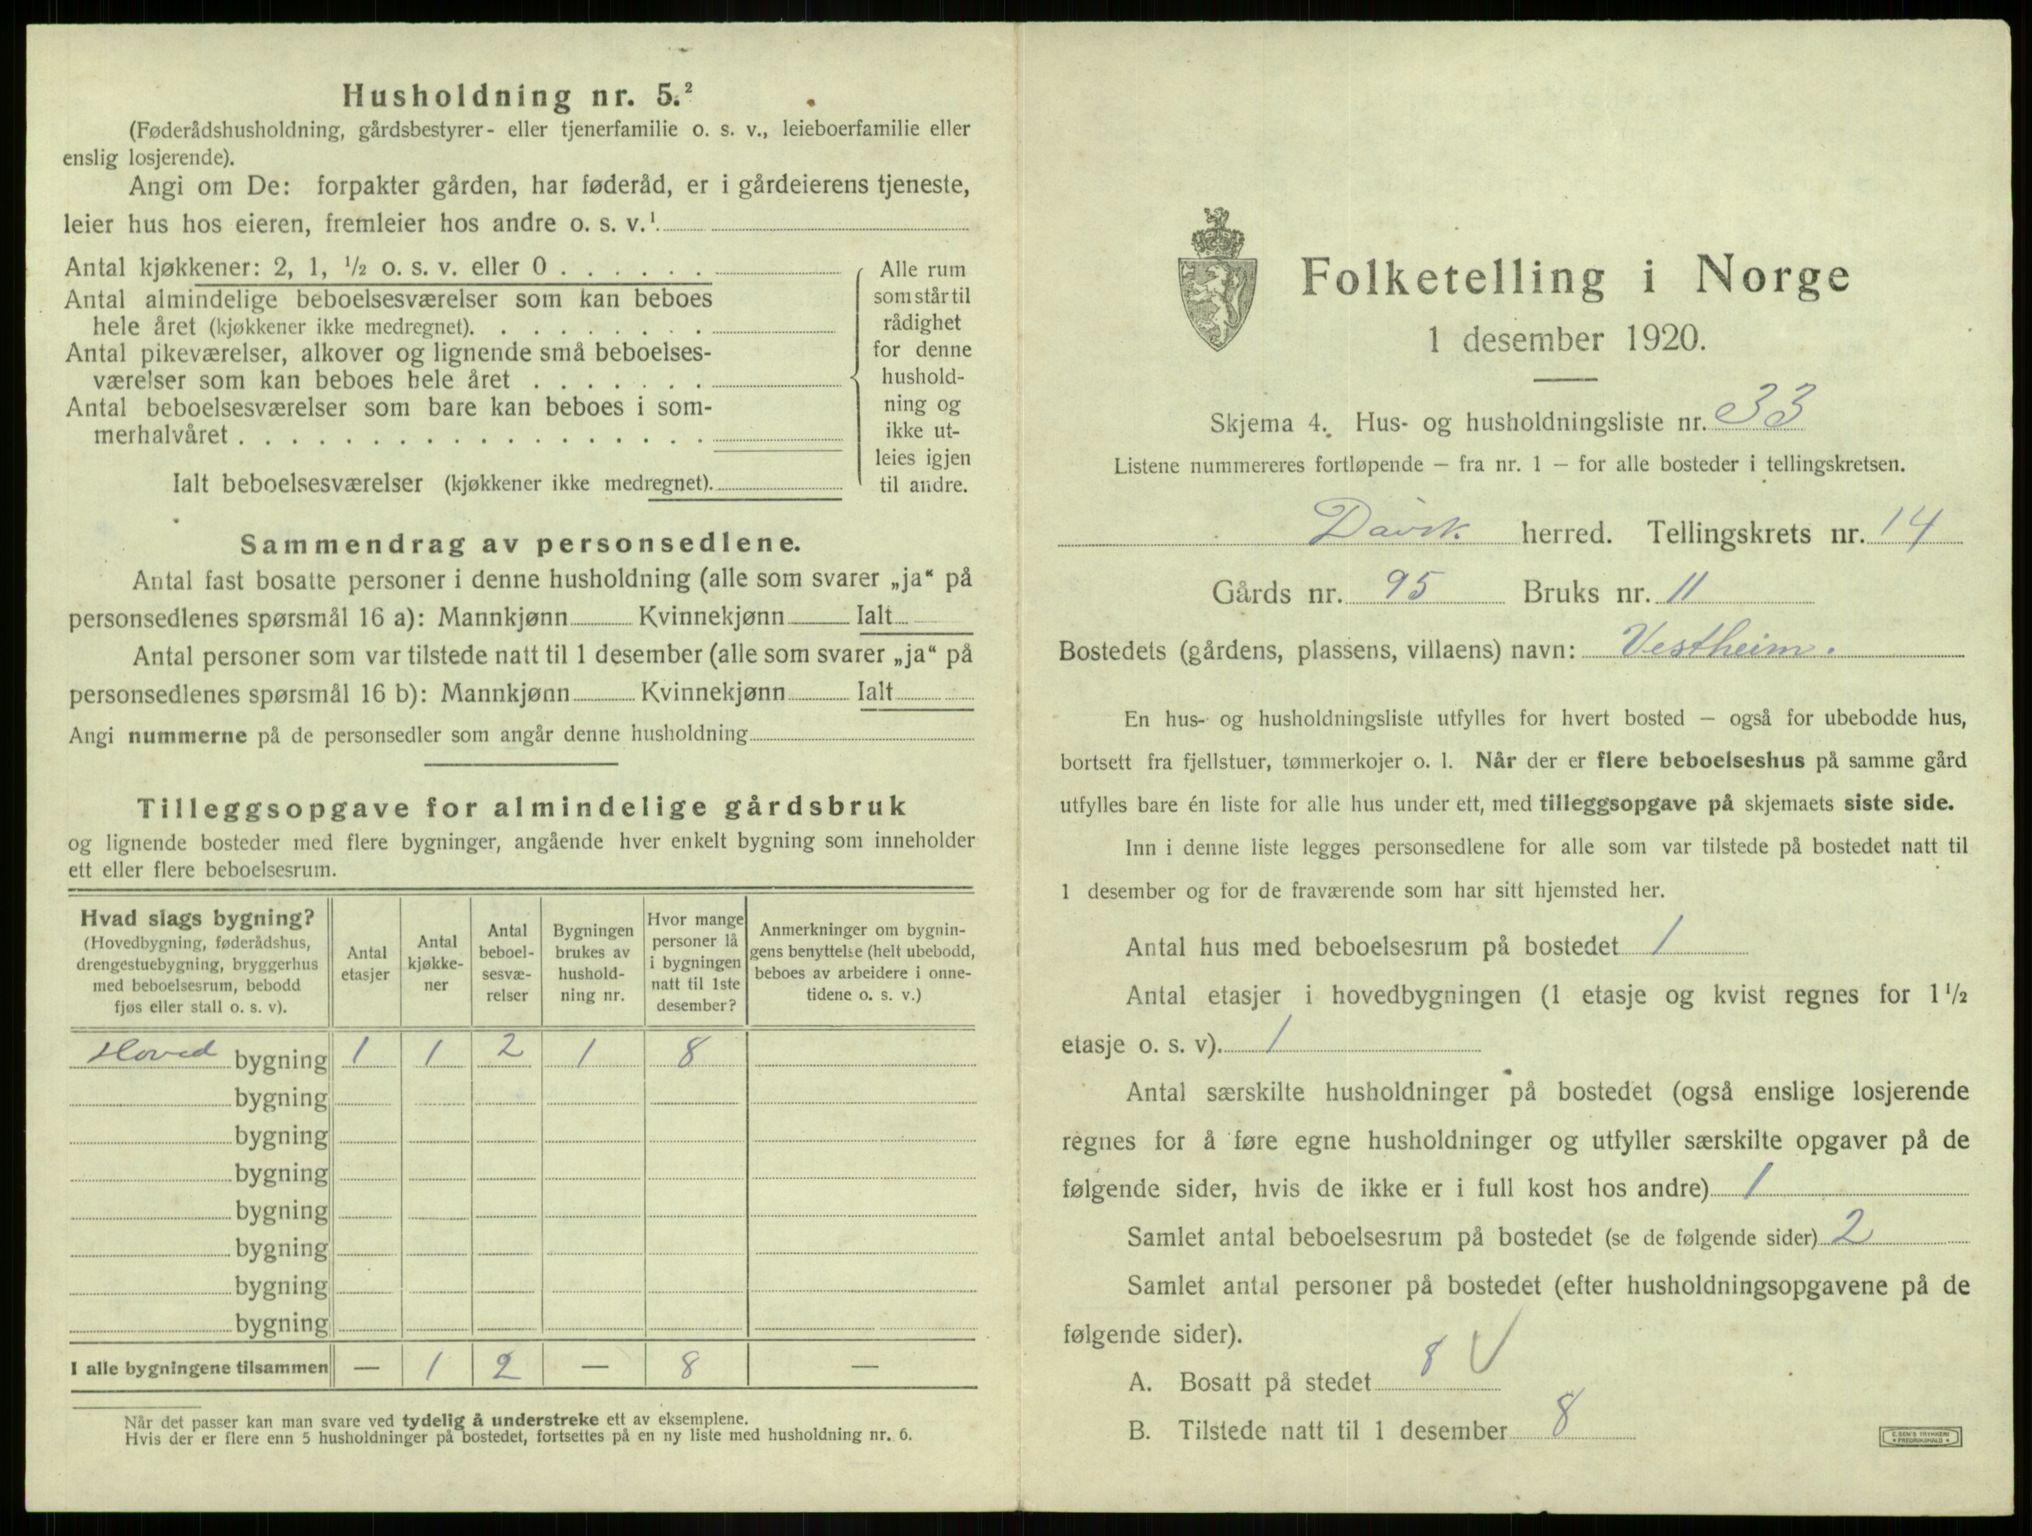 Husholdning nr. 5.²
(Føderådshusholdning, gårdsbestyrer- eller tjenerfamilie o. s. v., leieboerfamilie eller
enslig losjerende).
Angi om De: forpakter gården, har føderåd, er i gårdeierens tjeneste,
leier hus hos eieren, fremleier hos andre o. s. v.¹
Antal kjøkkener: 2, 1, ½ o. s. v. eller 0 . . . . . .
Antal almindelige beboelsesværelser som kan beboes
hele året (kjøkkener ikke medregnet). . . . . . . . .
Antal pikeværelser, alkover og lignende små beboelses-
værelser som kan beboes hele året . . . . . . .
Antal beboelsesværelser som bare kan beboes i som-
merhalvåret . . . . . . . . . . . . . . . . . .
Ialt beboelsesværelser (kjøkkener ikke medregnet).
Alle rum
som står til
rådighet
for denne
hushold-
ning og
ikke ut-
leies igjen
til andre.
Sammendrag av personsedlene.
Antal fast bosatte personer i denne husholdning (alle som svarer „ja“ på
personsedlenes spørsmål 16 a): Mannkjønn Kvinnekjønn Ialt
Antal personer som var tilstede natt til 1 desember (alle som svarer „ja“ på
personsedlenes spørsmål 16 b): Mannkjønn Kvinnekjønn Ialt
Angi nummerne på de personsedler som angår denne husholdning
Tilleggsopgave for almindelige gårdsbruk
og lignende bosteder med flere bygninger, angående hver enkelt bygning som inneholder
ett eller flere beboelsesrum.
Hvad slags bygning?
(Hovedbygning, føderådshus,
drengestuebygning, bryggerhus
med beboelsesrum, bebodd
fjøs eller stall o. s. v).
Antal
etasjer
Antal
kjøkke-
ner
Antal
beboel-
sesvæ-
relser
Bygningen
brukes av
hushold-
ning nr.
Hvor mange
personer lå
i bygningen
natt til 1ste
desember?
Anmerkninger om bygnin-
gens benyttelse (helt ubebodd,
beboes av arbeidere i onne-
tidene o. s. v.)
Hoved bygning 1 1 2 1 8
bygning
bygning
bygning
bygning
bygning
bygning
bygning
I alle bygningene tilsammen — 1 2 — 8 —
Når det passer kan man svare ved tydelig å understreke ett av eksemplene.
Hvis der er flere enn 5 husholdninger på bostedet, fortsettes på en ny liste med husholdning nr. 6.
Folketelling i Norge
1 desember 1920.
Skjema 4. Hus- og husholdningsliste nr. 33
Listene nummereres fortløpende – fra nr. 1 – for alle bosteder i tellingskretsen.
Davik herred. Tellingskrets nr. 14
Gårds nr. 95 Bruks nr. 11
Bostedets (gårdens, plassens, villaens) navn: Vestheim.
En hus- og husholdningsliste utfylles for hvert bosted – også for ubebodde hus,
bortsett fra fjellstuer, tømmerkojer o. l. Når der er flere beboelseshus på samme gård
utfylles bare én liste for alle hus under ett, med tilleggsopgave på skjemaets siste side.
Inn i denne liste legges personsedlene for alle som var tilstede på bostedet natt til
1 desember og for de fraværende som har sitt hjemsted her.
Antal hus med beboelsesrum på bostedet 1
Antal etasjer i hovedbygningen (1 etasje og kvist regnes for 1½
etasje o. s. v). 1
Antal særskilte husholdninger på bostedet (også enslige losjerende
regnes for å føre egne husholdninger og utfyller særskilte opgaver på de
følgende sider, hvis de ikke er i full kost hos andre) 1
Samlet antal beboelsesrum på bostedet (se de følgende sider) 2
Samlet antal personer på bostedet (efter husholdningsopgavene på de
følgende sider).
A. Bosatt på stedet 8 V
B. Tilstede natt til 1 desember 8
FREDRIKSHALD